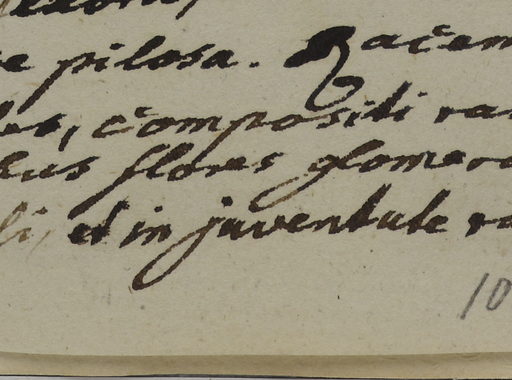 e pilosa. Racem
les, compositi ra
lus flores glomera
li, et in juventute r
10